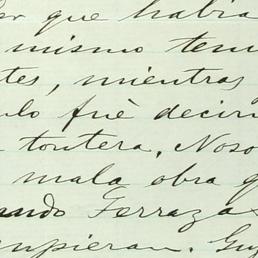 que habia
mismo tem
tes, mientras
lo fuè decir
tontera, Noso
mala obra q
ando Ferrazas
mpieran. Gu